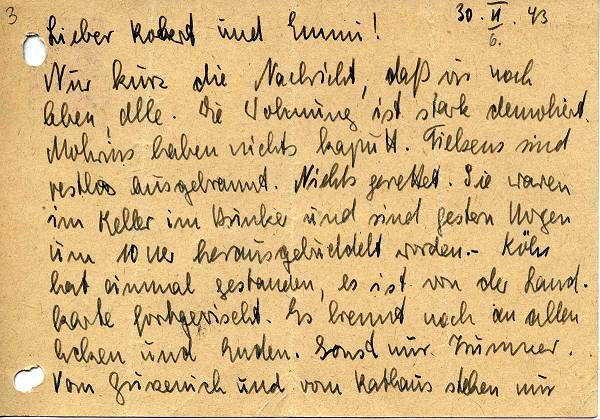 3
30. VI. 43
6.
Lieber Robert und Emmi!
Nur kurz die Nachricht, daß wir noch
leben, alle. Die Wohnung ist stark demoliert.
Mohrins haben nichts kaputt. Tielsens sind
restlos ausgebrannt. Nichts gerettet. Sie waren
im Keller im Bunker und sind gestern Morgen
um 10 Uer herausgebuddelt worden. – Köln
hat einmal gestanden, es ist von der Land-
karte fortgewischt. Es brennt noch an allen
Ecken und Enden. Sonst nur Trümmer.
Vom Gürzenich und vom Rathaus stehen nur